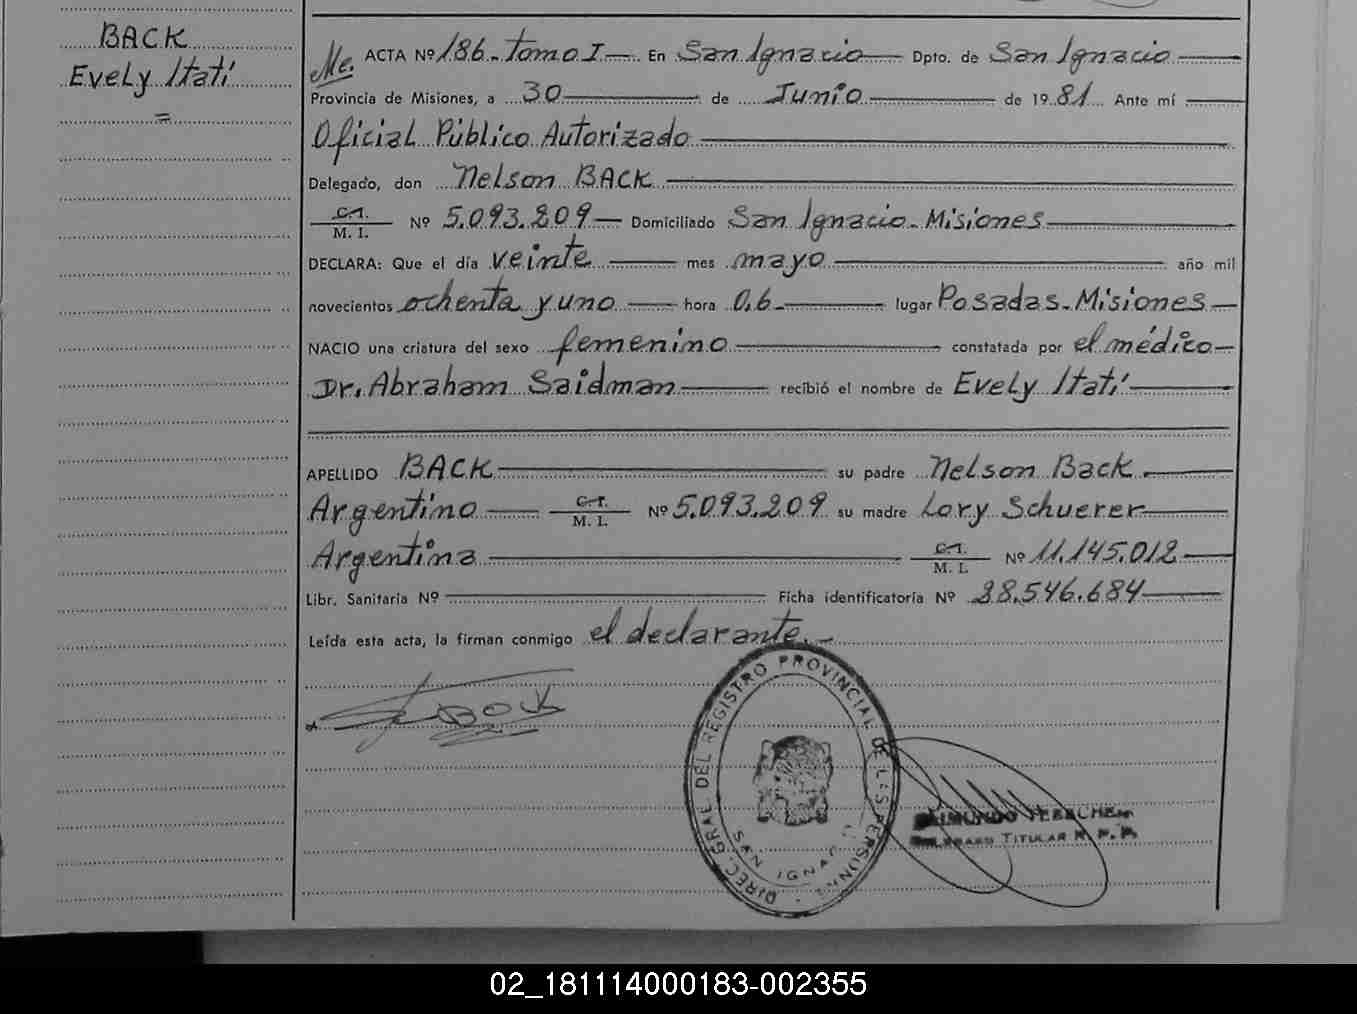 BACK
Evely Itatí
=
Me. ACTA Nº 186 - tomo I — En San Ignacio — Dpto. de San Ignacio —
Provincia de Misiones, a 30 — de Junio — de 1981 Ante mí —
Oficial Público Autorizado —
Delegado, don Nelson BACK —
C.I.
M. I. Nº 5.093.209 — Domiciliado San Ignacio - Misiones —
DECLARA: Que el día veinte — mes mayo — año mil
novecientos ochenta y uno — hora 0,6 — lugar Posadas - Misiones —
NACIO una criatura del sexo femenino — constatada por el médico —
Dr. Abraham Saidman — recibió el nombre de Evely Itatí —
APELLIDO BACK — su padre Nelson Back —
Argentino — C.I. M. I. Nº 5.093.209 su madre Lory Schuerer —
Argentina — C.I. M. I. Nº 11.145.012 —
Libr. Sanitaria Nº — Ficha identificatoria Nº 28.546.684 —
Leída esta acta, la firman conmigo el declarante. -
BACK
DIREC. GRAL. DEL REGISTRO PROVINCIAL DE LAS PERSONAS
SAN IGNACIO
TITULAR R. P. P.
02_181114000183-002355